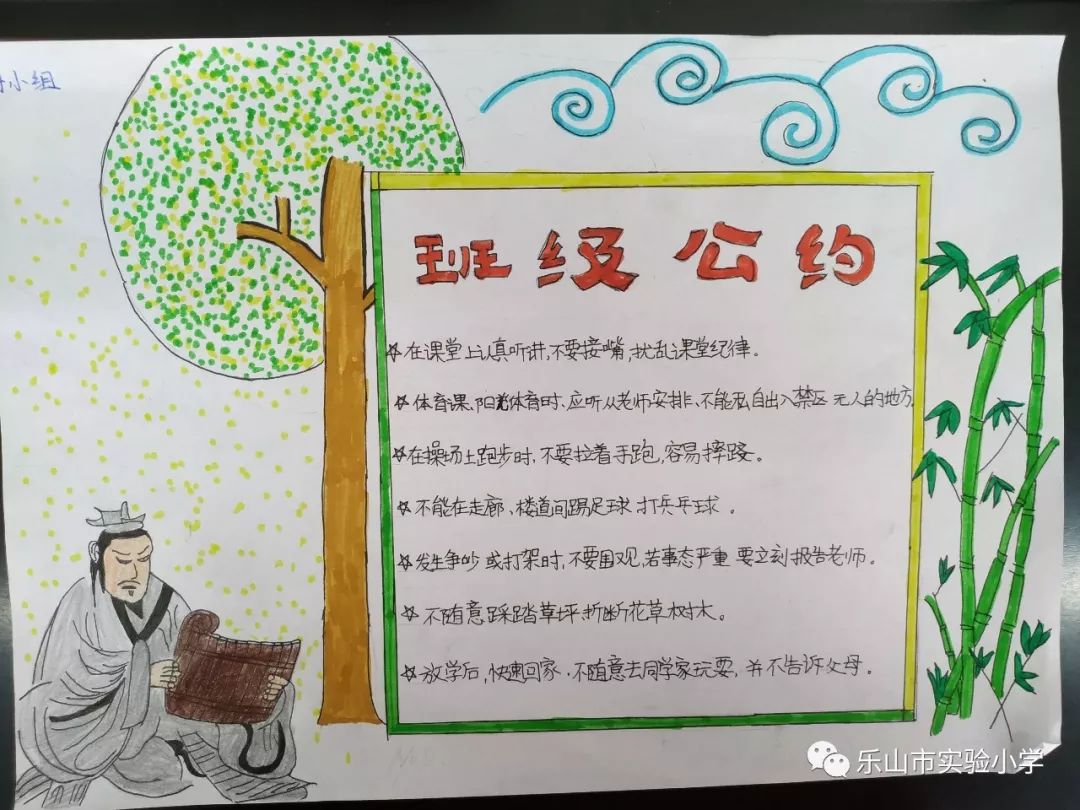 小组
班级公约
☆在课堂上认真听讲,不要接嘴,扰乱课堂纪律。
☆体育课、阳光体育时、应听从老师安排、不能私自出入禁区 无人的地方
☆在操场上跑步时,不要拉着手跑,容易摔跤。
☆不能在走廊、楼道间踢足球 打乒乓球 。
☆发生争吵 或打架时,不要围观,若事态严重 要立刻报告老师。
☆不随意踩踏草坪、折断花草树木。
☆放学后,快速回家 . 不随意去同学家玩耍, 并不告诉父母。
乐山市实验小学